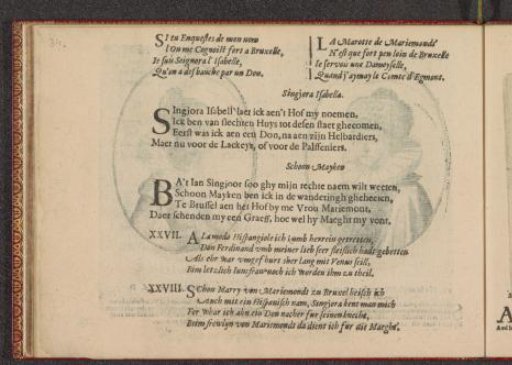 SI tu Enquestes de mon nom
l'On me Cognoist fort a Bruxelle,
Je suis Seignora l'Isabelle,
Qu'on a desbauché par un Don.
LA Marotte de Mariemondt
N'est que fort peu loin de Bruxelle
Je servou une Damoyselle,
Quand j'aymay le Comte d'Egmont.
Singjora Isabella.
SIngjora Isabell' laet ick aen't Hof my noemen.
Ick ben van slechten Huys tot desen staet ghecomen,
Eerst was ick aen een Don, na aen zijn Helbardiers,
Maer nu voor de Lackeys, of voor de Palffeniers.
Schoon Mayken
BA't Ian Singjoor soo ghy mijn rechte naem wilt weeten,
Schoon Mayken ben ick in de wanderingh gheheeten,
Te Brussel aen het Hof by me Vrou Mariemont,
Daer schenden my een Graeff, hoe wel hy Maeght my vont.
XXVII. A La moda Hispangiole ich
herrein getretten,
Don Ferdinand umb meiner lieb seer fleislich hadt gebetten
Als ehr war
hurt ober lang mit Venus seill,
Bim letzlich Iunsfrauw noch ich worden ihm zu theil.
XXVIII. SChon Marry von Mariemondt zu Bruxel heisch ich
Auch mit ein Hispanisch nam, Singjora kent man mich
Vor
war ich ahn ein Don nacher fur seinen knecht,
Beim frewlyn von Mariemondt da dient ich fur die Marght.